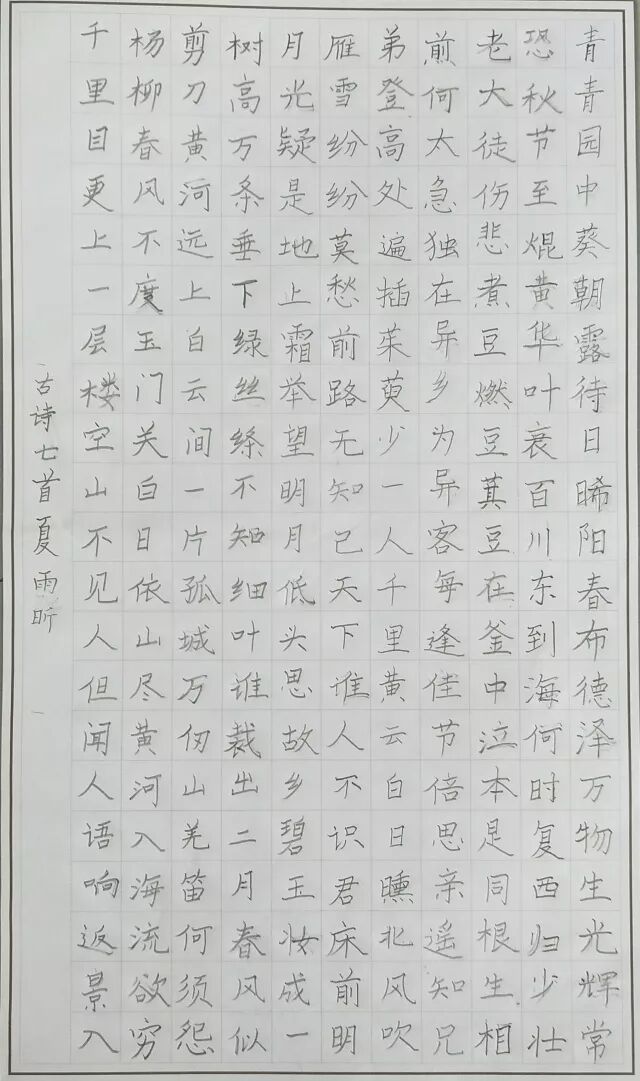 青青园中葵朝露待日晞阳春布德泽万物生光辉常
恐秋节至焜黄华叶衰百川东到海何时复西归少壮
老大徒伤悲煮豆燃豆萁豆在釜中泣本是同根生相
煎何太急独在异乡为异客每逢佳节倍思亲遥知兄
弟登高处遍插茱萸少一人千里黄云白日曛北风吹
雁雪纷纷莫愁前路无知己天下谁人不识君床前明
月光疑是地上霜举望明月低头思故乡碧玉妆成一
树高万条垂下绿丝绦不知细叶谁裁出二月春风似
剪刀黄河远上白云间一片孤城万仞山羌笛何须怨
杨柳春风不度玉门关白日依山尽黄河入海流欲穷
千里目更上一层楼空山不见人但闻人语响返景入
古诗七首夏雨昕